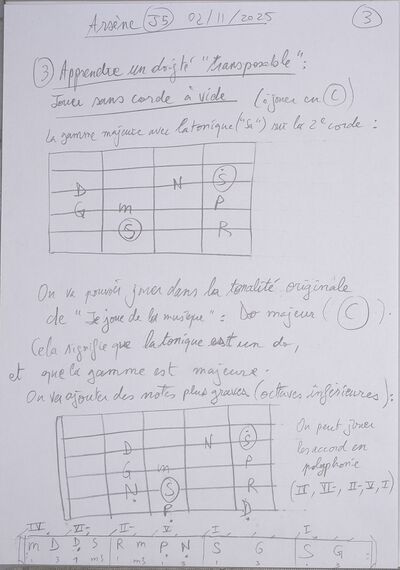 Arsène J5 02/11/2025
3
3 Apprendre un doigté "transposable":
Jouer sans corde à vide (à jouer en C)
La gamme majeure avec la tonique ("Sa") sur la 2e corde :
D N Ṡ
G m P
S R
On va pouvoir jouer dans la tonalité originale
de "Je joue de la musique" : Do majeur ( C ).
Cela signifie que la tonique est un do,
et que la gamme est majeure.
On va ajouter des notes plus graves (octaves inférieures):
D N Ṡ
G m P
Ṇ S R
Ṗ Ḍ
On peut jouer
les accord en
polyphonie
(II, VI-, II-, V, I)
IV VI- II- V I I
m D Ḍ S R m P Ṇ S G S G